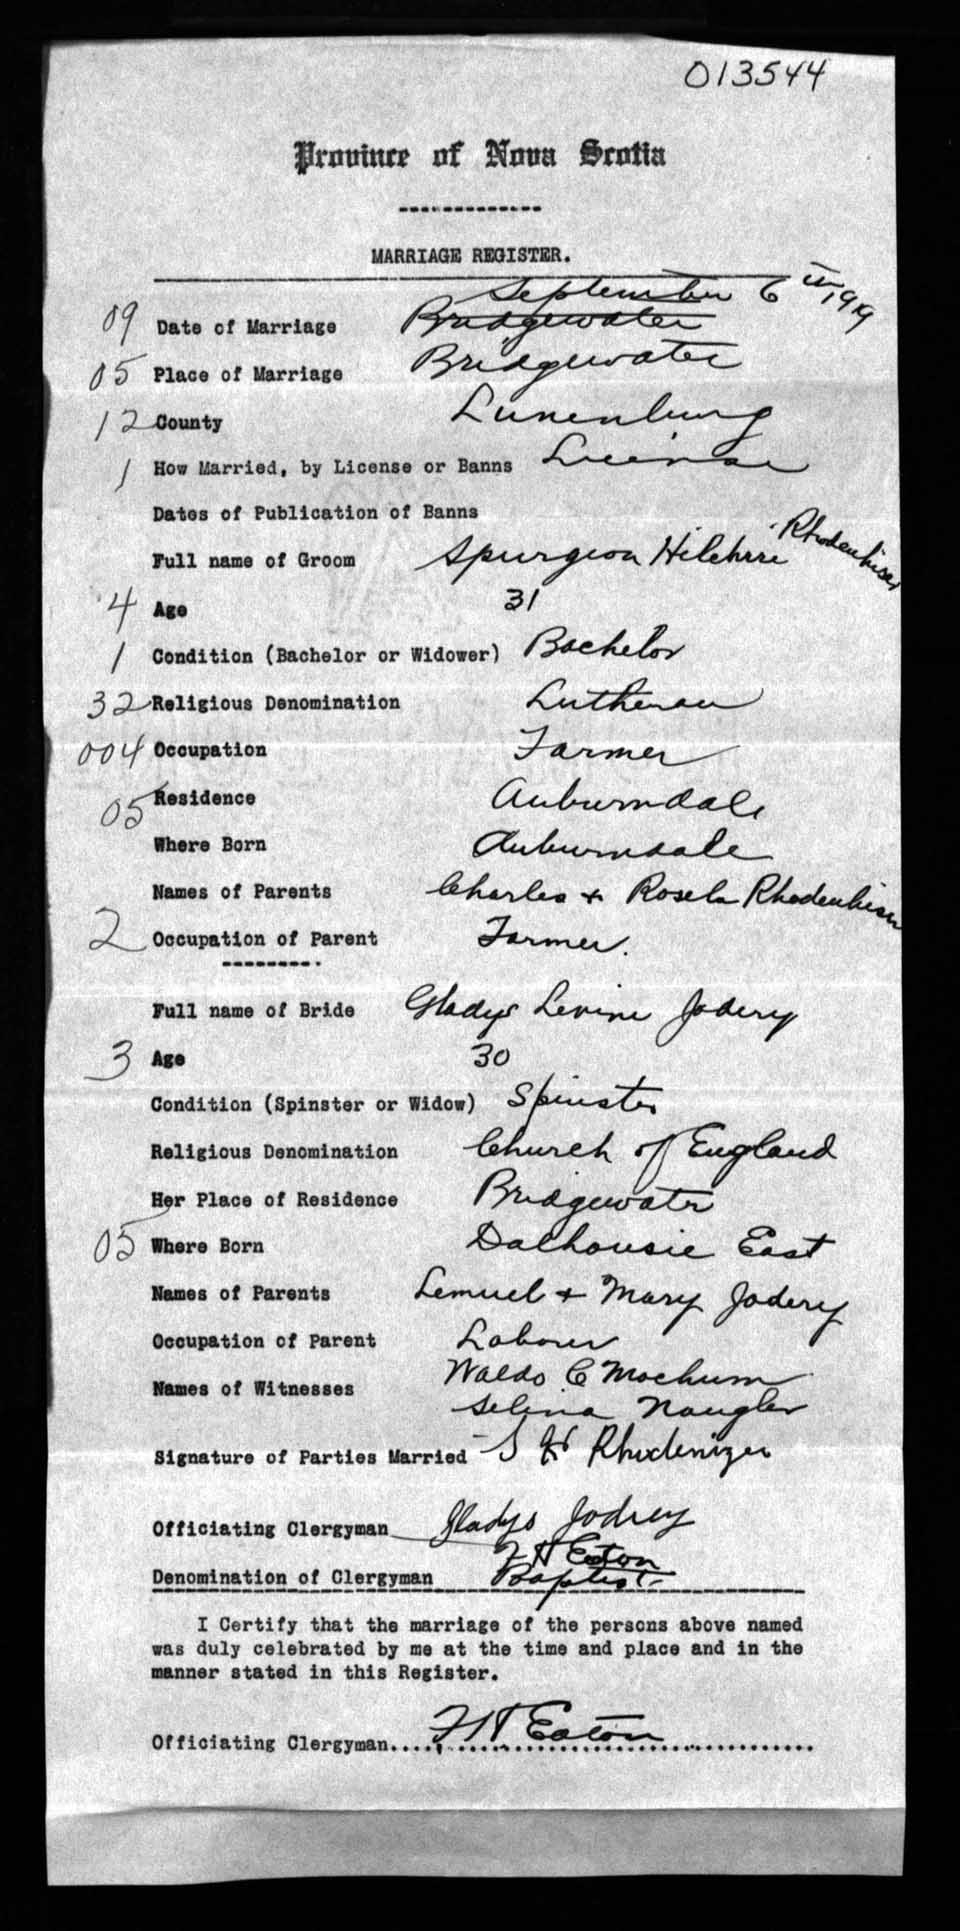 013544
Province of Nova Scotia
MARRIAGE REGISTER.
September 6th, 1919
09 Date of Marriage Bridgewater
05 Place of Marriage Bridgewater
12 County Lunenburg
1 How Married, by License or Banns License
Dates of Publication of Banns
Full name of Groom Spurgeon Rhodenhiser
4 Age 31
1 Condition (Bachelor or Widower) Bachelor
32 Religious Denomination Lutheran
004 Occupation Farmer
05 Residence Auburndale
Where Born Auburndale
Names of Parents Charles + Rosela Rhodenhiser
2 Occupation of Parent Farmer.
Full name of Bride Gladys Levine Jodery
3 Age 30
Condition (Spinster or Widow) Spinster
Religious Denomination Church of England
Her Place of Residence Bridgewater
05 Where Born Dalhousie East
Names of Parents Lemuel + Mary Jodery
Occupation of Parent Laborer
Names of Witnesses Waldo C
Selina Naugler
Signature of Parties Married S H Rhodenizer
Gladys Jodrey
Officiating Clergyman F H Eaton
Denomination of Clergyman Baptist
I Certify that the marriage of the persons above named
was duly celebrated by me at the time and place and in the
manner stated in this Register.
Officiating Clergyman.... F H Eaton